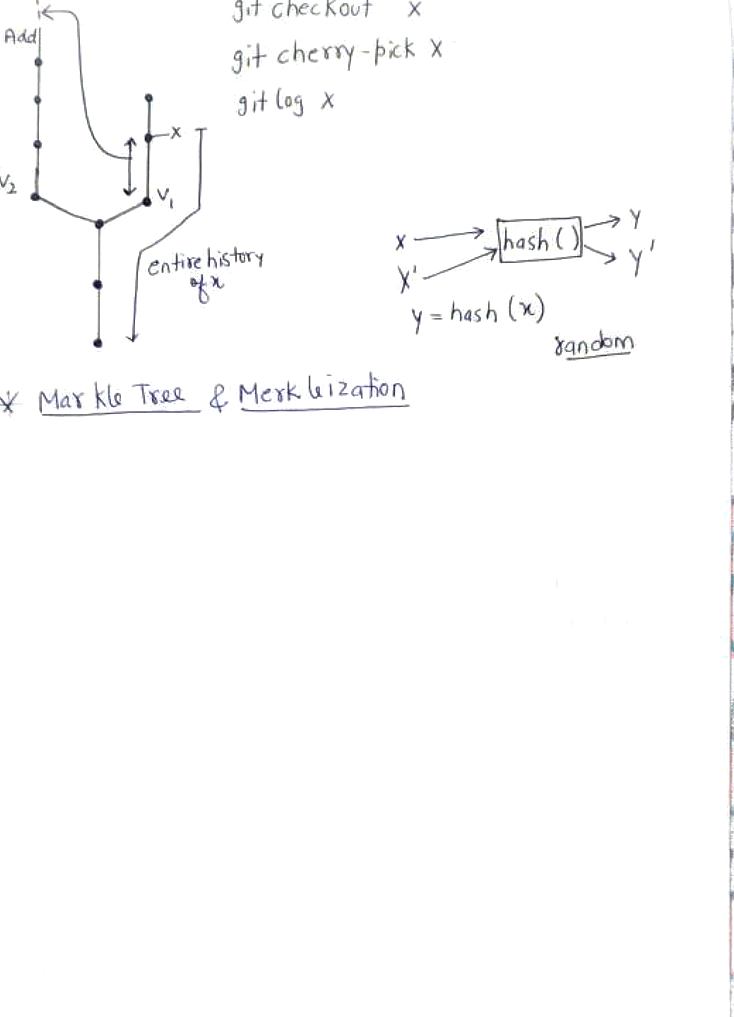 git checkout x
Add
git cherry-pick x
git log x
x
V2
V1
entire history
of x
x
hash()
y
y'
x'
y = hash (x)
random
* Markle Tree & Merkleization